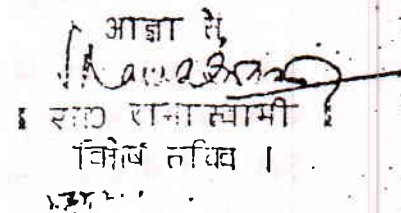 आज्ञा से,
[ एस0 रामा स्वामी ]
विशेष सचिव ।